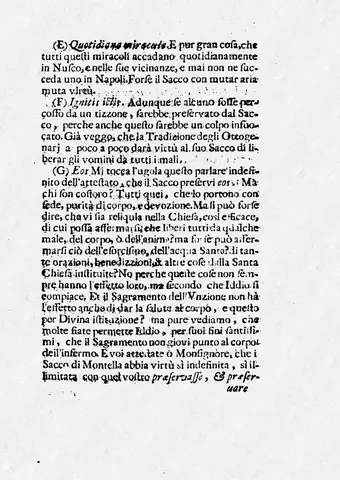 (E) Quotidiana miracula. E pur gran cosa, che
tutti questi miracoli accadano quotidianamente
in Nusco, e nelle sue vicinanze, e mai non ne suc-
ceda uno in Napoli. Forse il Sacco con mutar aria
muta virtù.
(F) Ignitis ictib. Adunque se alcuno fosse per-
cosso da un tizzone, sarebbe preservato dal Sac-
co, perche anche questo sarebbe un colpo infuo-
cato. Già veggo, che la Tradizione degli Ottoge-
narj a poco a poco darà virtù al suo Sacco di li-
berar gli vomini da tutti i mali.
(G) Eos Mi tocca l'ugola questo parlare indefi-
nito dell'attestato, che il Sacco preservi eos. Ma
chi son costoro? Tutti quei, che lo portono con
fede, purità di corpo, e devozione. Ma si può forse
dire, che vi sia reliquia nella Chiesa, così efficace,
di cui possa affermarsi, che liberi tutti da qualche
male, del corpo, ò dell'animo? ma forse può affer-
marsi ciò dell'esorcismo, dell'acqua Santa? di tan-
te orazioni, benedizzioni, & altre cose dalla Santa
Chiesa instituite? No perche queste cose non sem-
pre hanno l'effetto loro, ma secondo che Iddio si
compiace. Et il Sagramento dell'Vnzione non hà
l'effetto anche di dar la salute al corpo, e questo
per Divina istituzione? ma pure vediamo, che
molte fiate permette Iddio, per suoi fini santissi-
mi, che il Sagramento non giovi punto al corpo
dell'infermo. E voi attestate ò Monsignore, che il
Sacco di Montella abbia virtù sì indefinita, sì il-
limitata con quel vostro præservasse, & præser-
vare